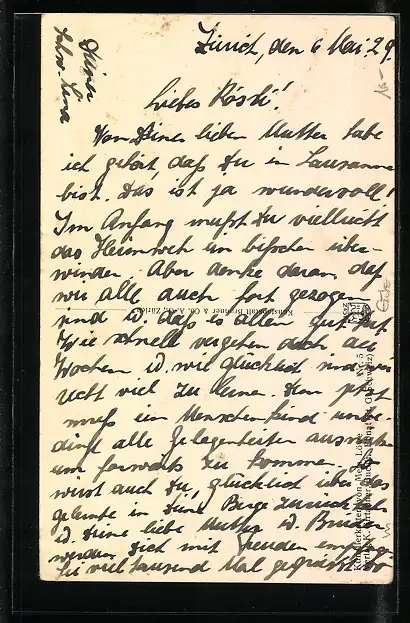 Zürich, den 6 Mai 29.
Liebes Rösli!
Von Deiner lieben Mutter habe
ich gehört, daß Du in Lausanne
bist. Das ist ja wundervoll!
Im Anfang mußt Du vielleicht
das Heimweh ein bißchen über-
winden. Aber denke daran, daß
wir alle auch fort gezogen
sind u. daß es allen gut tut.
Wie schnell vergehen doch die
Wochen u. wie glücklich sind wir
recht viel zu lernen. Denn jetzt
muß ein Menschenkind unbe-
dingt alle Gelegenheiten ausnützen
um vorwärts zu kommen.
wirst auch Du, glücklich über das
gelernte in Deine Berge zurück
u. Deine liebe Mutter u. Brüder
werden Dich mit Freuden
Sei viel tausend Mal gegrüßt
Deiner
Lina
Kunstanstalt Brunner & Co. A.G., Zürich
Nr. 5